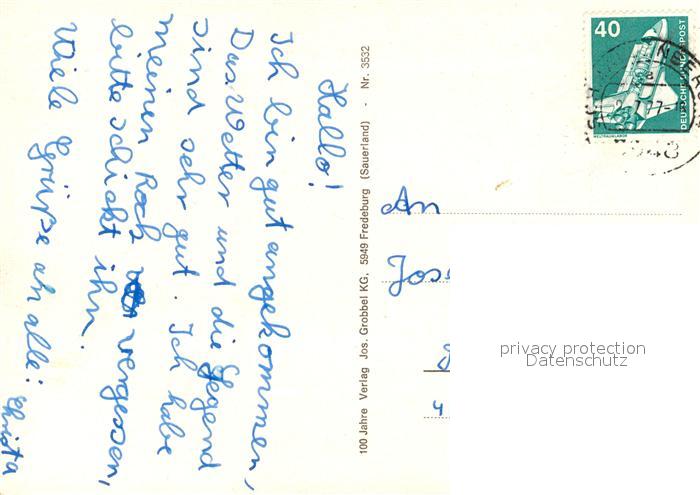 Hallo!
Ich bin gut angekommen,
Das Wetter und die Gegend
sind sehr gut. Ich habe
meinen Rock vergessen,
bitte schickt ihn.
Viele Grüße an alle:
Christa
100 Jahre Verlag Jos. Grobbel KG, 5949 Fredeburg (Sauerland) - Nr. 3532
An
Jos
4
40
DEUTSCHE BUNDESPOST
WELTRAUMLABOR
privacy protection
Datenschutz